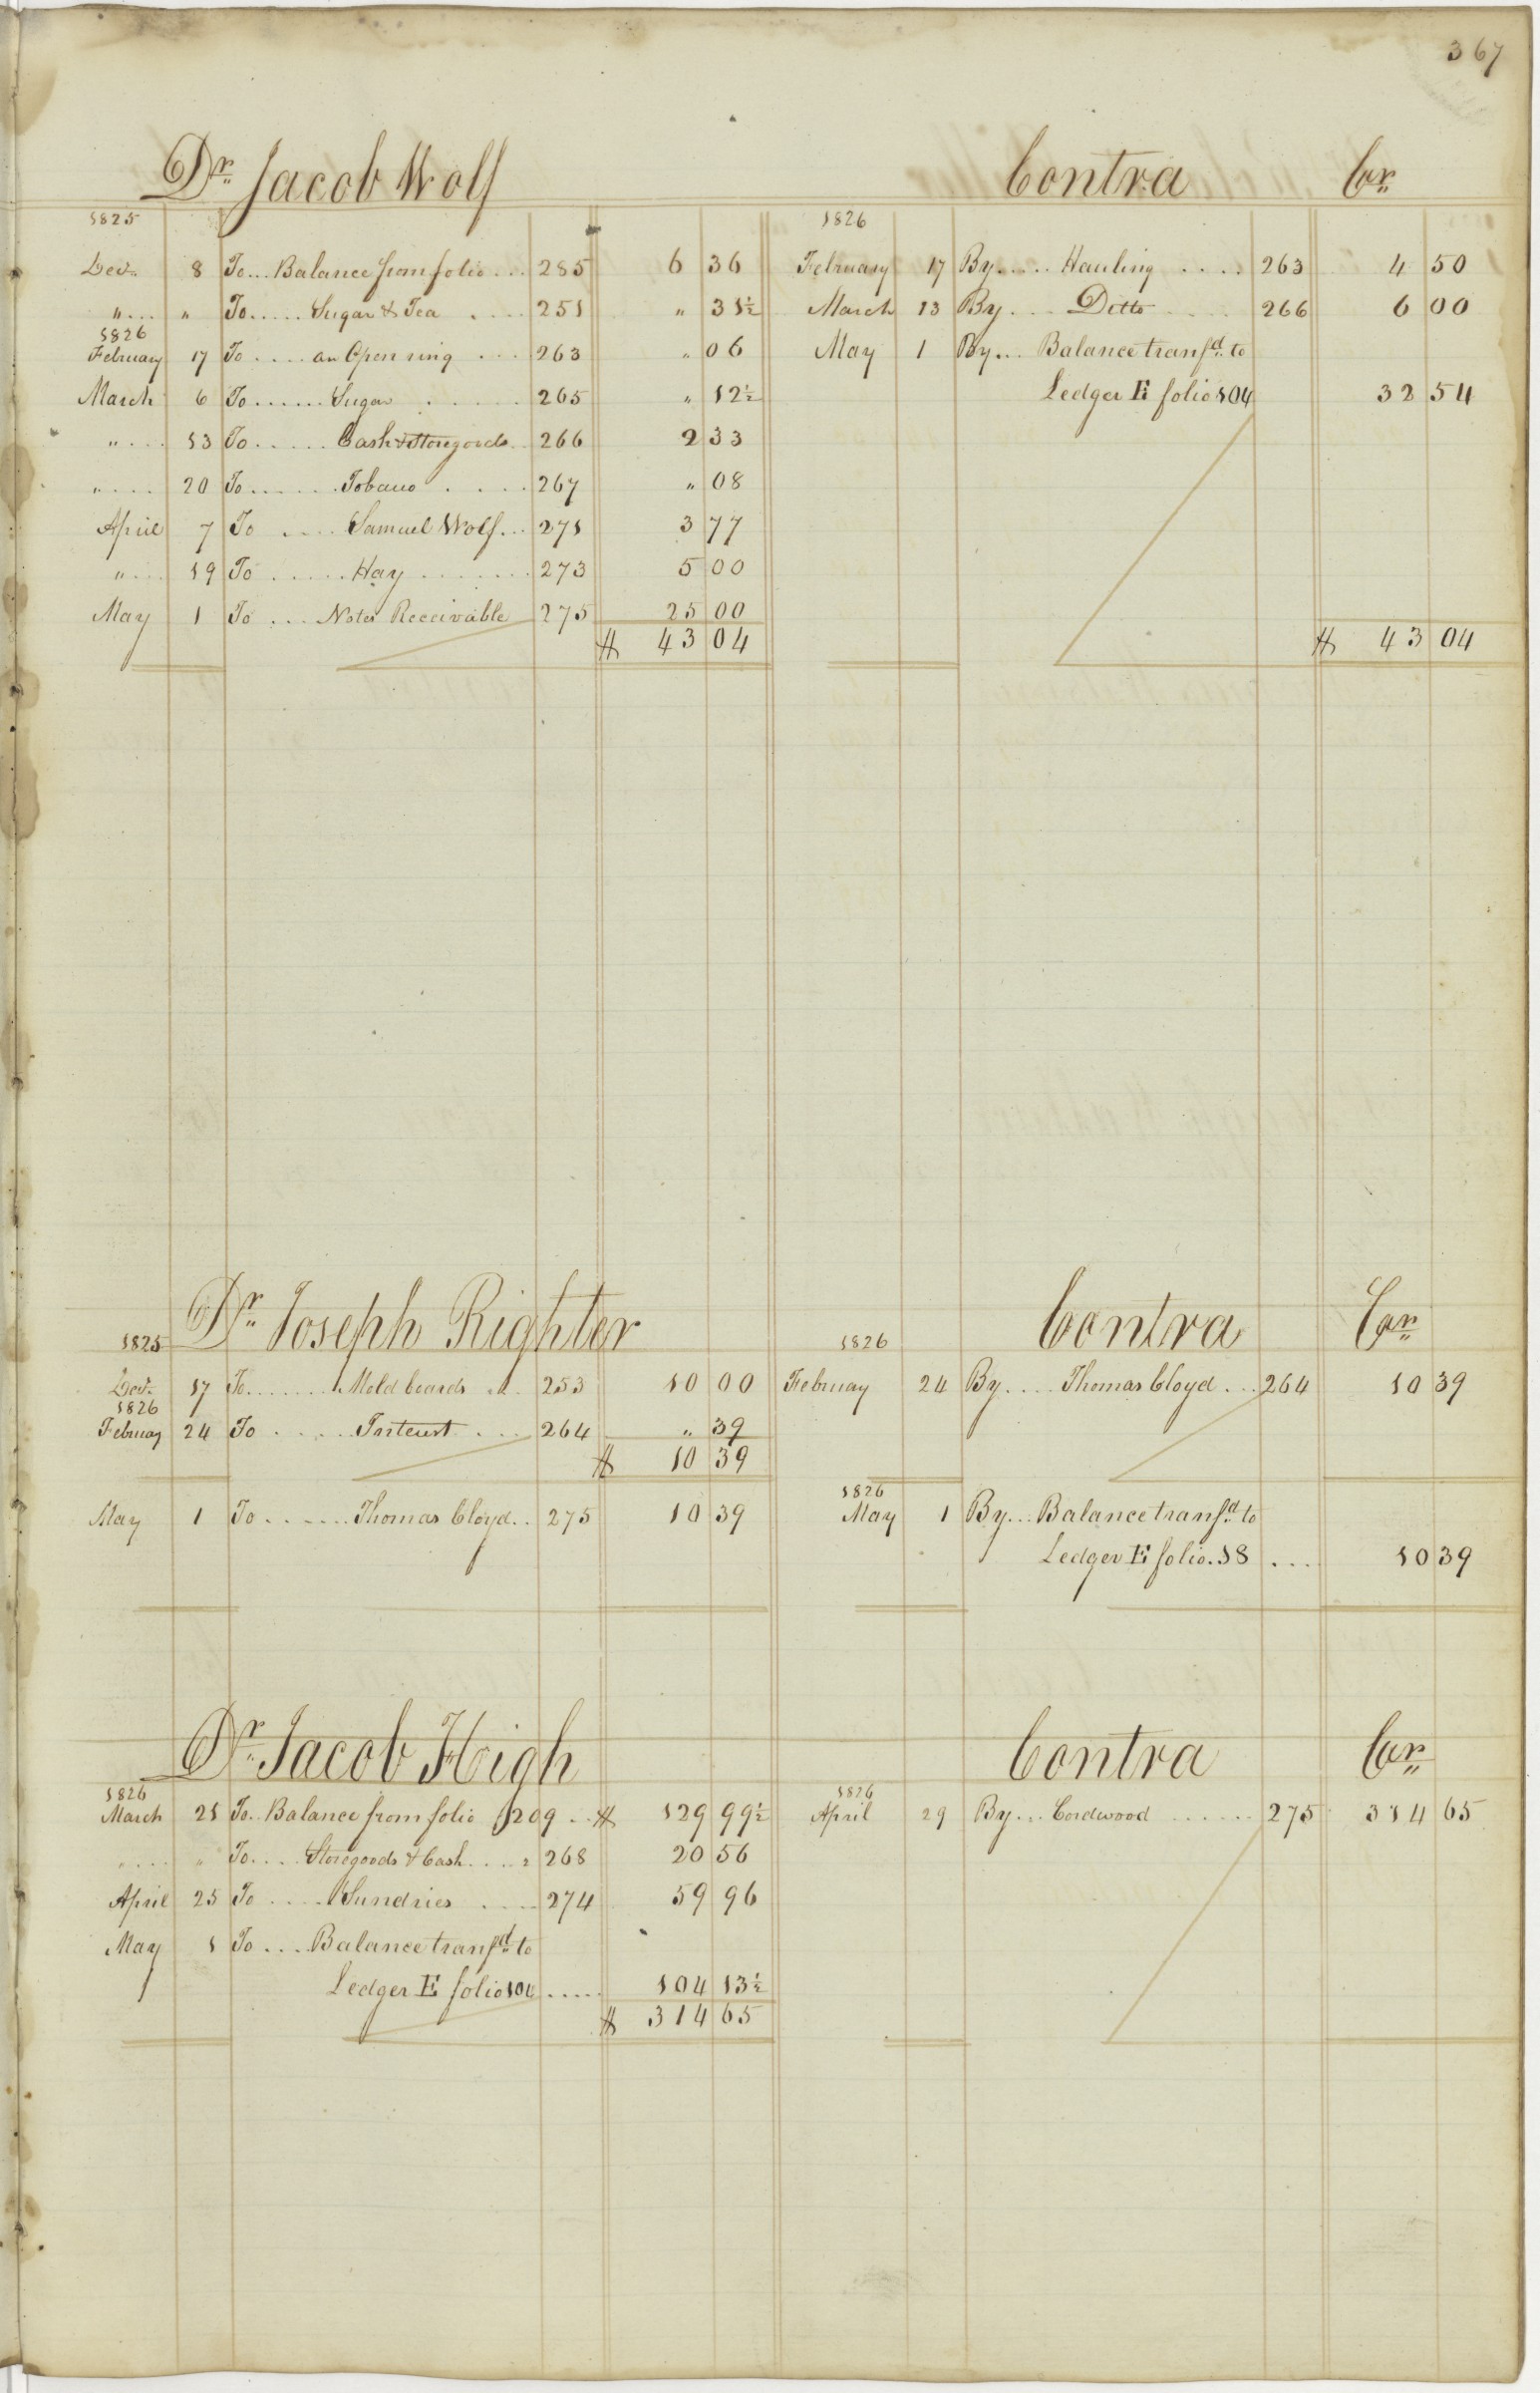 367
Dr. Jacob Wolf
1825
Decr. 8 To... Balance from folio ... 285 6 36
"... " To..... Sugar & Tea .... 251 " 31½
1826
February 17 To .... an Open ring ... 263 " 06
March 6 To...... Sugar ..... 265 " 12½
".... 13 To..... Cash & Storegoods.. 266 2 33
".... 20 To ...... Tobacco ..... 267 " 08
April 7 To .... Samuel Wolf... 271 3 77
".... 19 To ..... Hay ....... 273 5 00
May 1 To ... Notes Receivable 275 25 00
$ 43 04
Contra Cr.
1826
February 17 By..... Hauling ..... 263 4 50
March 13 By.... Ditto ..... 266 6 00
May 1 By... Balance transfd. to
Ledger E folio 104 32 54
$ 43 04
Dr. Joseph Righter
1825
Decr. 17 To....... Mold boards ... 253 10 00
1826
February 24 To ..... Interest .... 264 " 39
$ 10 39
May 1 To ...... Thomas Cloyd.. 275 10 39
Contra Cr.
1826
February 24 By.... Thomas Cloyd ... 264 10 39
1826
May 1 By... Balance transfd. to
Ledger E folio. 18 ... 10 39
Dr. Jacob High
1826
March 21 To.. Balance from folio 209 .. $ 129 99½
".... " To.... Storegoods & Cash.... 268 20 56
April 25 To .... Sundries .... 274 59 96
May 1 To ... Balance transfd. to
Ledger E folio ..... 104 13½
$ 314 65
Contra Cr.
1826
April 29 By... Cordwood ...... 275 314 65